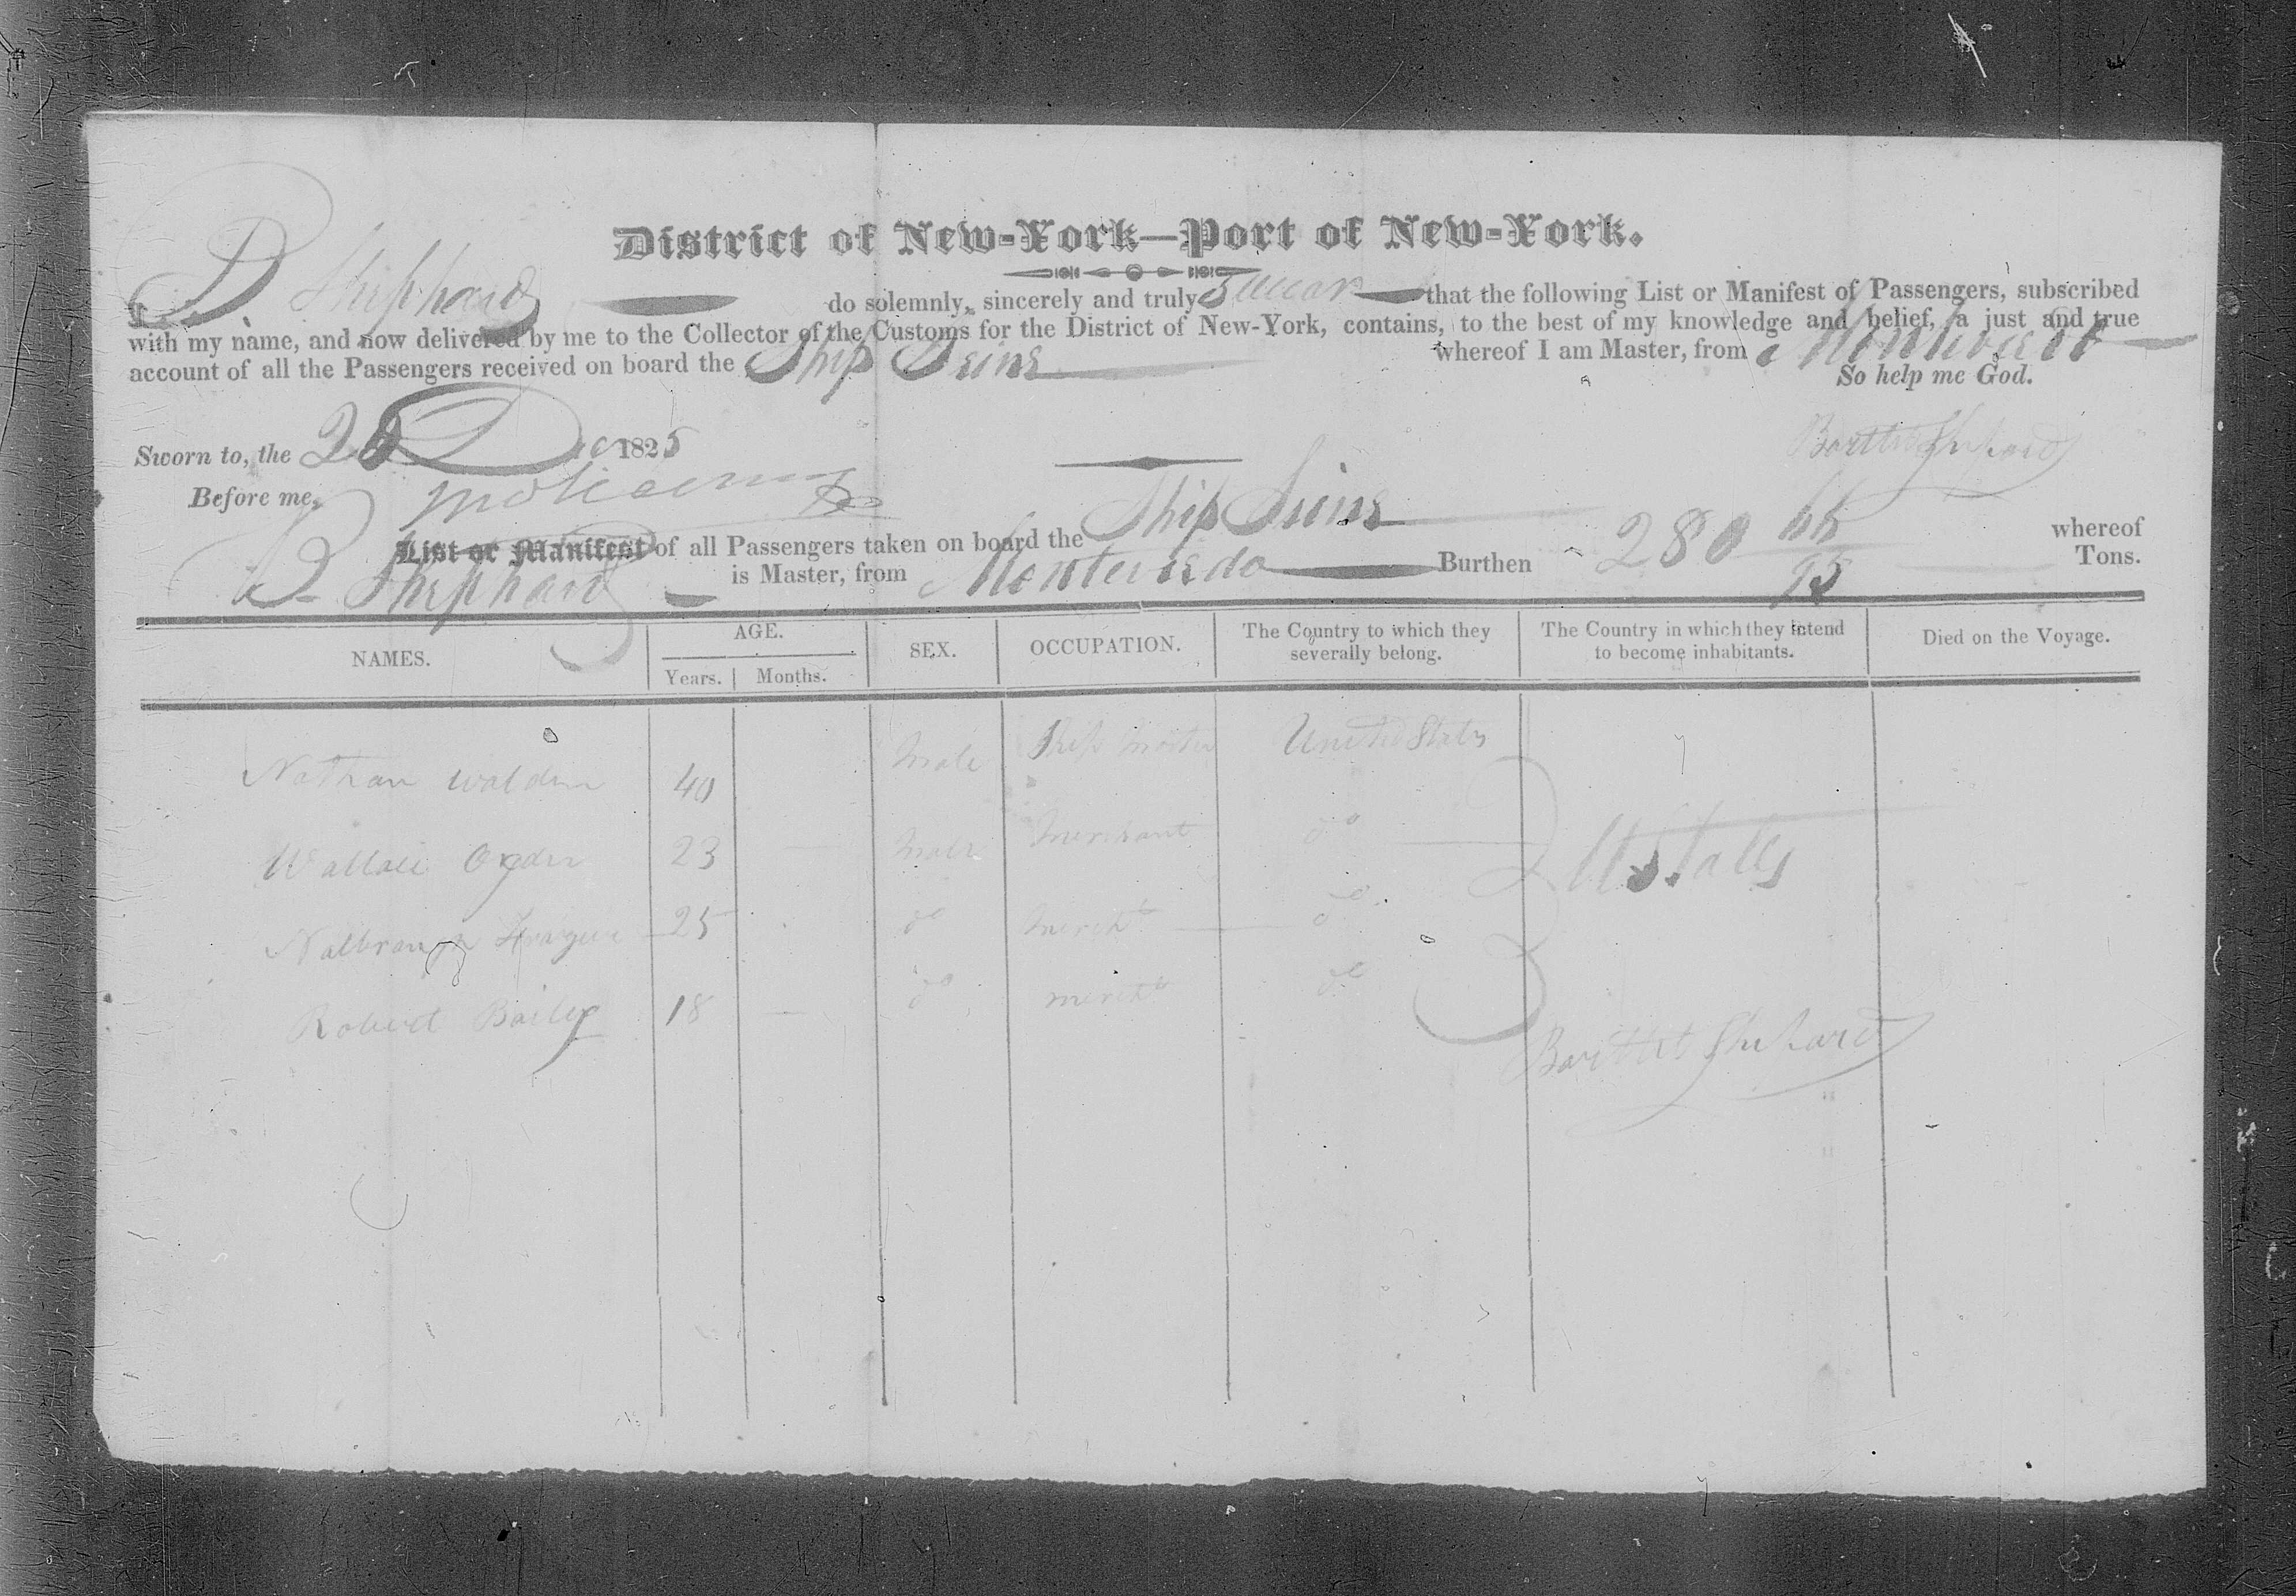 District of New-York—Port of New-York.
I, B Shephard do solemnly, sincerely and truly swear that the following List or Manifest of Passengers, subscribed
with my name, and now delivered by me to the Collector of the Customs for the District of New-York, contains, to the best of my knowledge and belief, a just and true
account of all the Passengers received on board the Ship whereof I am Master, from Montevideo
So help me God.
Sworn to, the 28 Dec 1825
Bartlet Shephard
Before me,
List or Manifest of all Passengers taken on board the Ship whereof
B Shephard is Master, from Montevedo Burthen 280 Tons.
NAMES. AGE. Years. Months. SEX. OCCUPATION. The Country to which they severally belong. The Country in which they intend to become inhabitants. Died on the Voyage.
Nathan Walden 40 Male Ship Master United States
Wallace Ogden 23 Male Merchant do U States
25 do mercht do
Robert Bailey 18 do mercht do
Bartlet Shephard